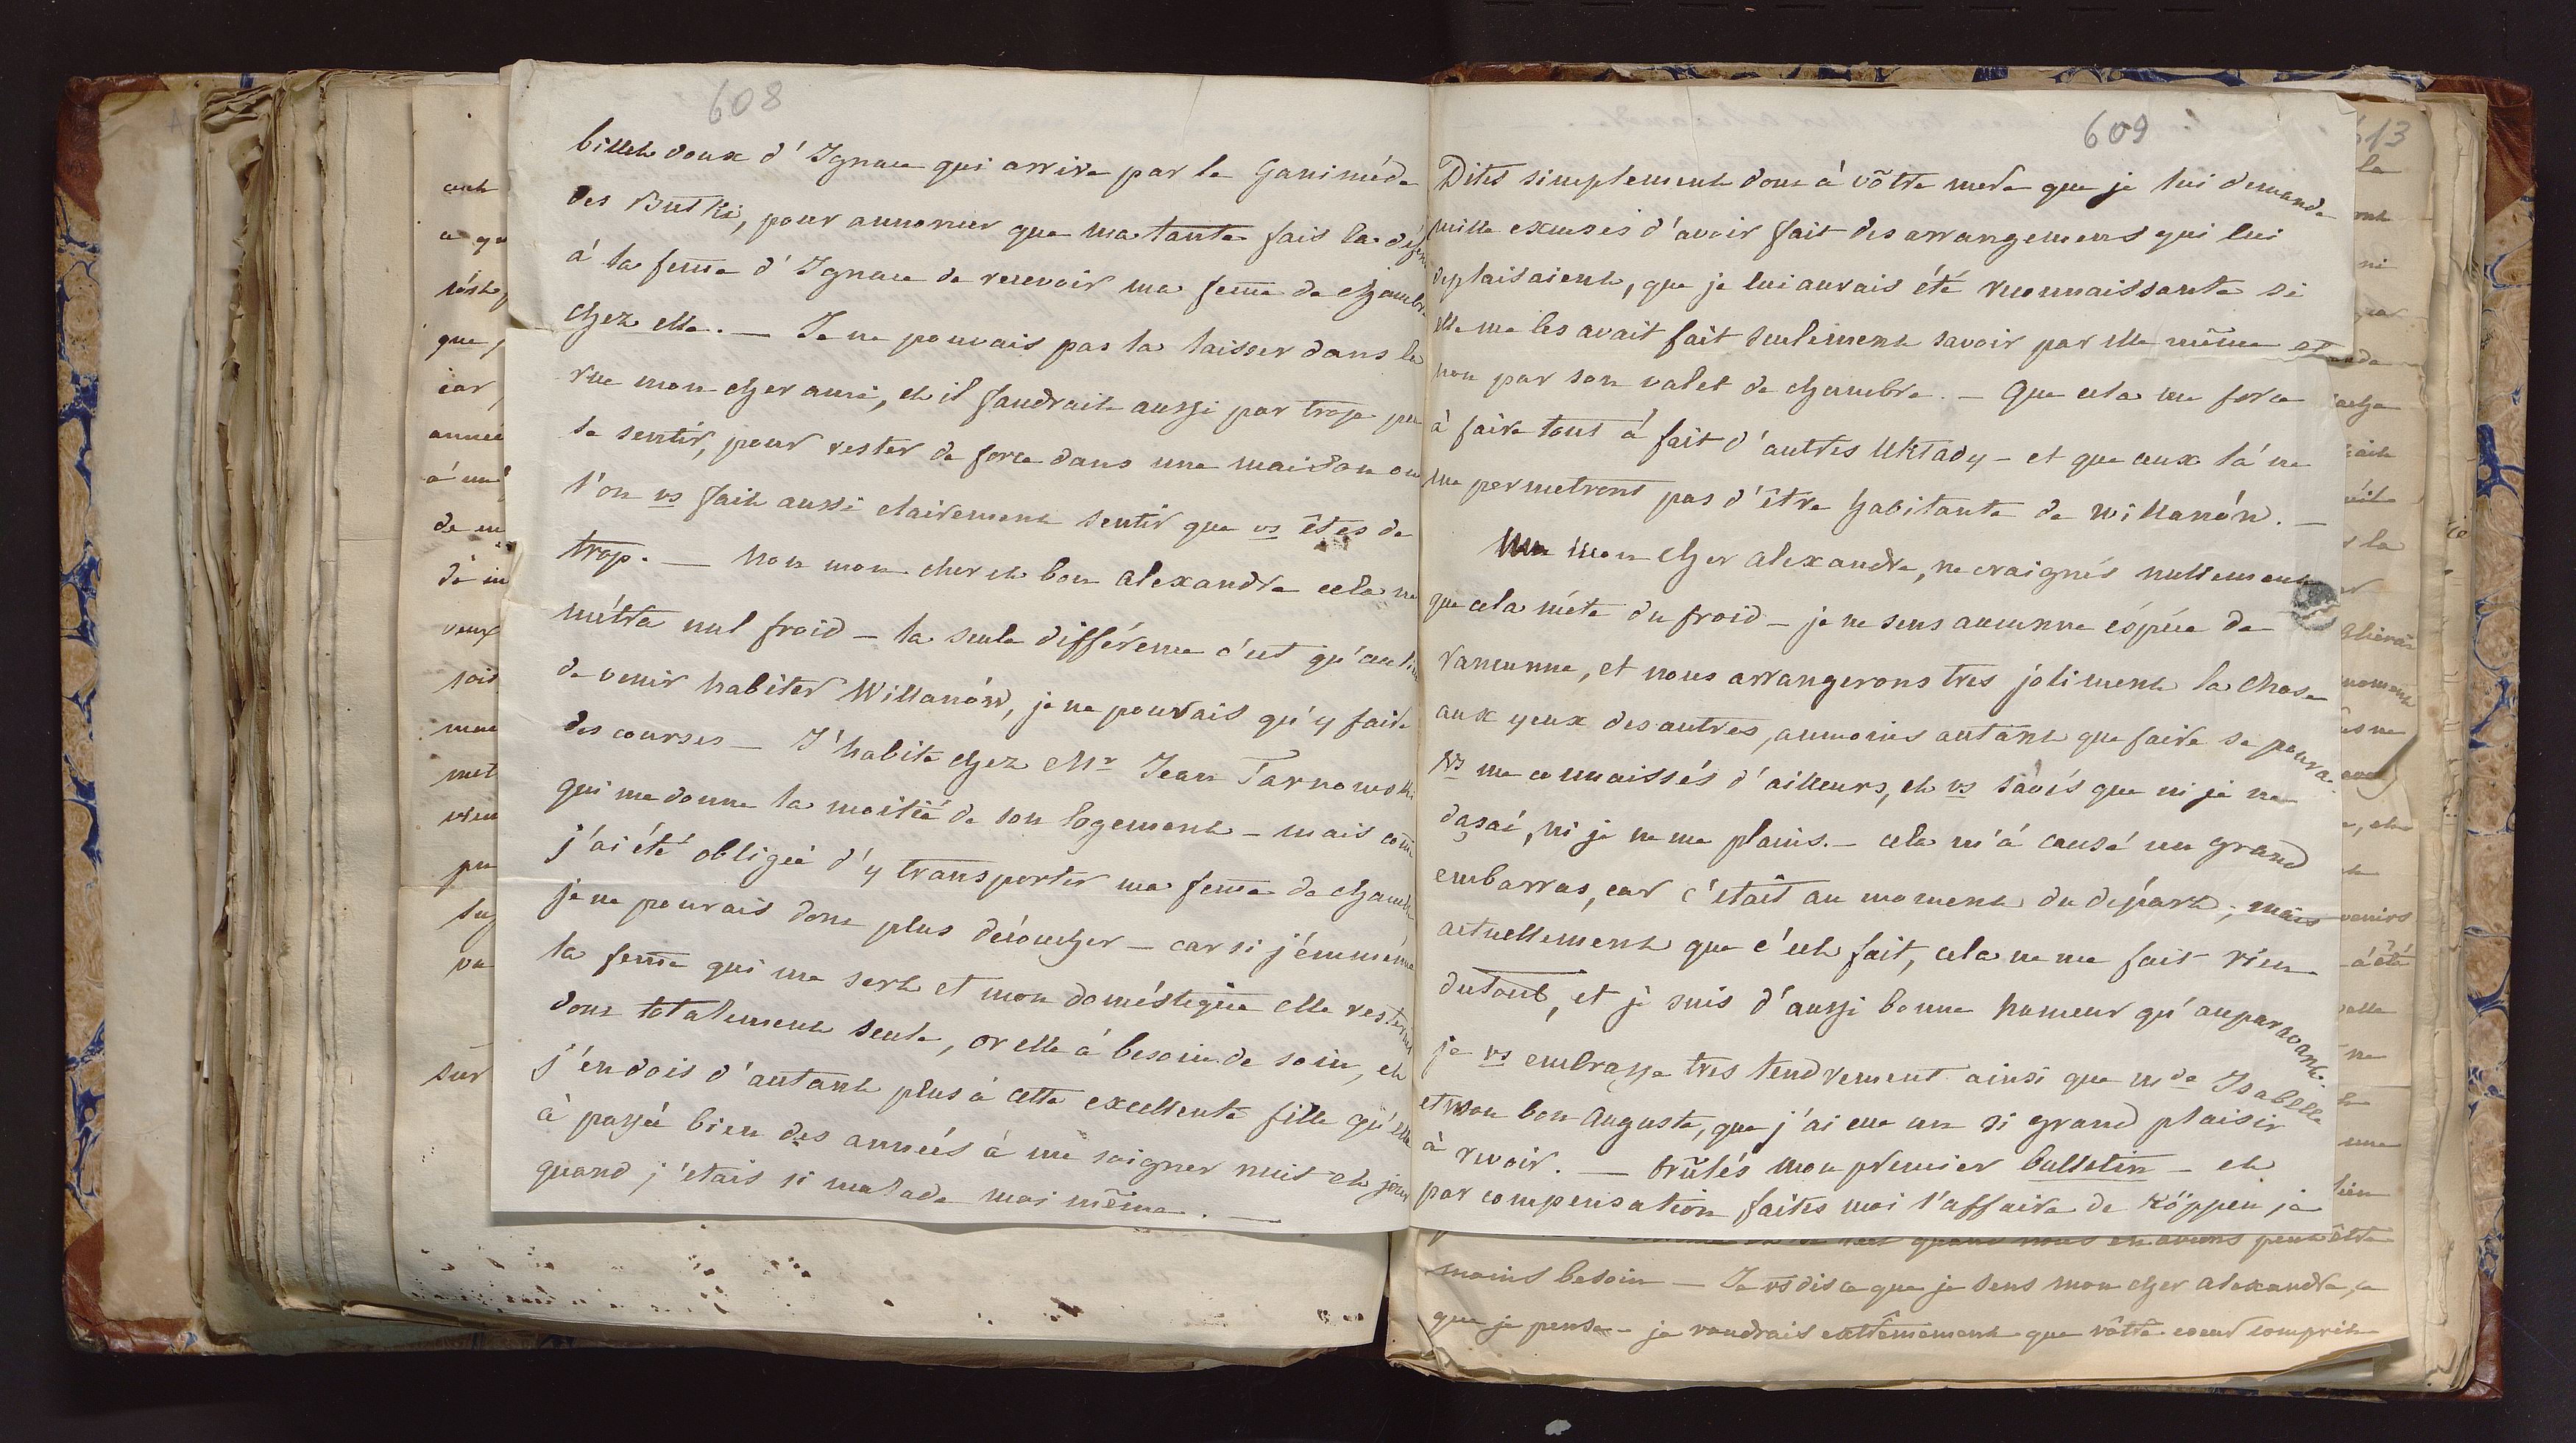 608
billet doux d'Ignace qui arrive par le Ganiméde
des Butki, pour annoncer que ma tante fais la défen
à la feme d'Ignace de recevoir ma feme de chambre
chez elle. — Je ne pouvais pas la laisser dans la
rue mon cher ami, et il faudrait aussi par trop peu
se sentir, pour rester de force dans une maison ou
l'on vs fait aussi clairement sentir que vs êtes de
trop. — non mon cher et bon alexandre cela ne
métra nul froid — la seule différence c'est qu'au lieu
de venir habiter Willanów, je ne pourais qu'y faire
des courses — J'habite chez Mr Jean Tarnowski
qui me donne la moitié de son logement — mais come
j'ai été obligée d'y transporter ma feme de chambre
je ne pourais donc plus découcher — car si j'émméne
la feme qui me sert et mon doméstique elle resterait
donc totalement seule, or elle à besoin de soin, et
j'en dois d'autant plus à cette excellente fille qu'elle
à passé bien des années à me soigner nuit et jour
quand j'étais si malade moi même. —
609
Dites simplement donc à vôtre mere que je lui demande
mille excuses d'avoir fait des arrangemens qui lui
deplaisaient, que je lui aurais été reconnaissante si
elle me les avait fait seulement savoir par elle même et
non par son valet de chambre. — Que cela me force
à faire tout à fait d'autres Układy — et que ceux là ne
me permetront pas d'être habitante de Willanón. —
mon cher alexandre, ne craignés nullement
que cela méte du froid — je ne sens aucunne éspéce de
rancunne, et nous arrangerons tres joliment la chose
aux yeux des autres, aumoins autant que faire se pourra.
Vs me connaissés d'ailleurs, et vs savés que ni je ne
dąsać, ni je ne me plains. — cela m'à causé un grand
embarras, car c'était au moment du départ; mais
actuellement que c'est fait, cela ne me fait rien
dutout, et je suis d'aussi bonne humeur qu'auparavant.
je vs embrasse tres tendrement ainsi que mde Isabelle
et mon bon Auguste, que j'ai eue un si grand plaisir
à revoir. — brûlés mon premier bulletin — et
par compensation faites moi l'affaire de Köppen je
613
quand nous en avons peut être
moins besoin — Je vs dis ce que je sens mon cher alexandre, ce
que je pense — je voudrais extrêmement que vôtre coeur comprit